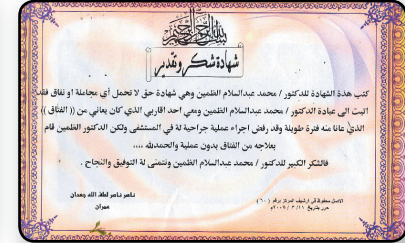 بسم الله الرحمن الرحيم
شهادة شكر وتقدير
كتب هذة الشهادة للدكتور / محمد عبدالسلام الظمين وهي شهادة حق لا تحمل أي مجاملة او نفاق فقد
اتيت الى عيادة الدكتور / محمد عبدالسلام الظمين ومعي احد اقاربي الذي كان يعاني من (( الفتاق ))
الذي عانا منه فترة طويلة وقد رفض اجراء عملية جراحية لة في المستشفى ولكن الدكتور الظمين قام
بعلاجه من الفتاق بدون عملية والحمدلله ....
فالشكر الكبير للدكتور / محمد عبدالسلام الظمين ونتمنى لة التوفيق والنجاح .
ناصر ناصر لطف الله
عمران
الاصل محفوظة في ارشيف المركز برقم ( ٦٠ )
حرر بتاريخ